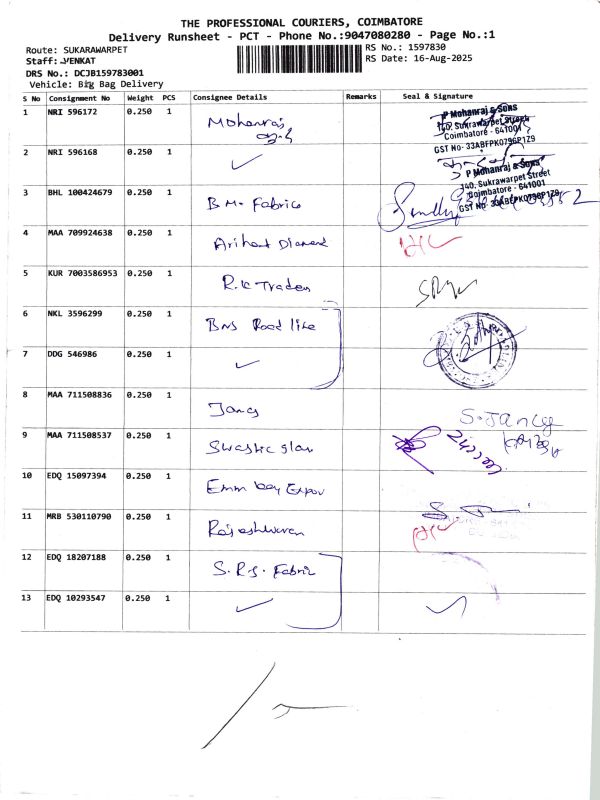 THE PROFESSIONAL COURIERS, COIMBATORE
Delivery Runsheet - PCT - Phone No.:9047080280 - Page No.:1
Route: SUKARAWARPET
RS No.: 1597830
Staff: VENKAT
RS Date: 16-Aug-2025
DRS No.: DCJB159783001
Vehicle: Big Bag Delivery
S No Consignment No Weight PCS Consignee Details Remarks Seal & Signature
1 NRI 596172 0.250 1 Mohanraj
P Mohanraj & Sons
140, Sukrawarpet Street
Coimbatore - 641001
GST No- 33ABFPK0796P1Z9
2 NRI 596168 0.250 1 ✓
P Mohanraj & Sons
140, Sukrawarpet Street
Coimbatore - 641001
GST No- 33ABFPK0796P1Z9
3 BHL 100424679 0.250 1 B.M. Fabrics
4 MAA 709924638 0.250 1 Arihant Diamond
5 KUR 7003586953 0.250 1 R.K Traders
6 NKL 3596299 0.250 1 BNS Food like
7 DDG 546986 0.250 1 ✓
8 MAA 711508836 0.250 1 Jancy S. Jancy
9 MAA 711508537 0.250 1 Swastic Star
10 EDQ 15097394 0.250 1 Emm bay Expor
11 MRB 530110790 0.250 1 Rajeshwaren
12 EDQ 18207188 0.250 1 S.R.S. Fabric
13 EDQ 10293547 0.250 1 ✓